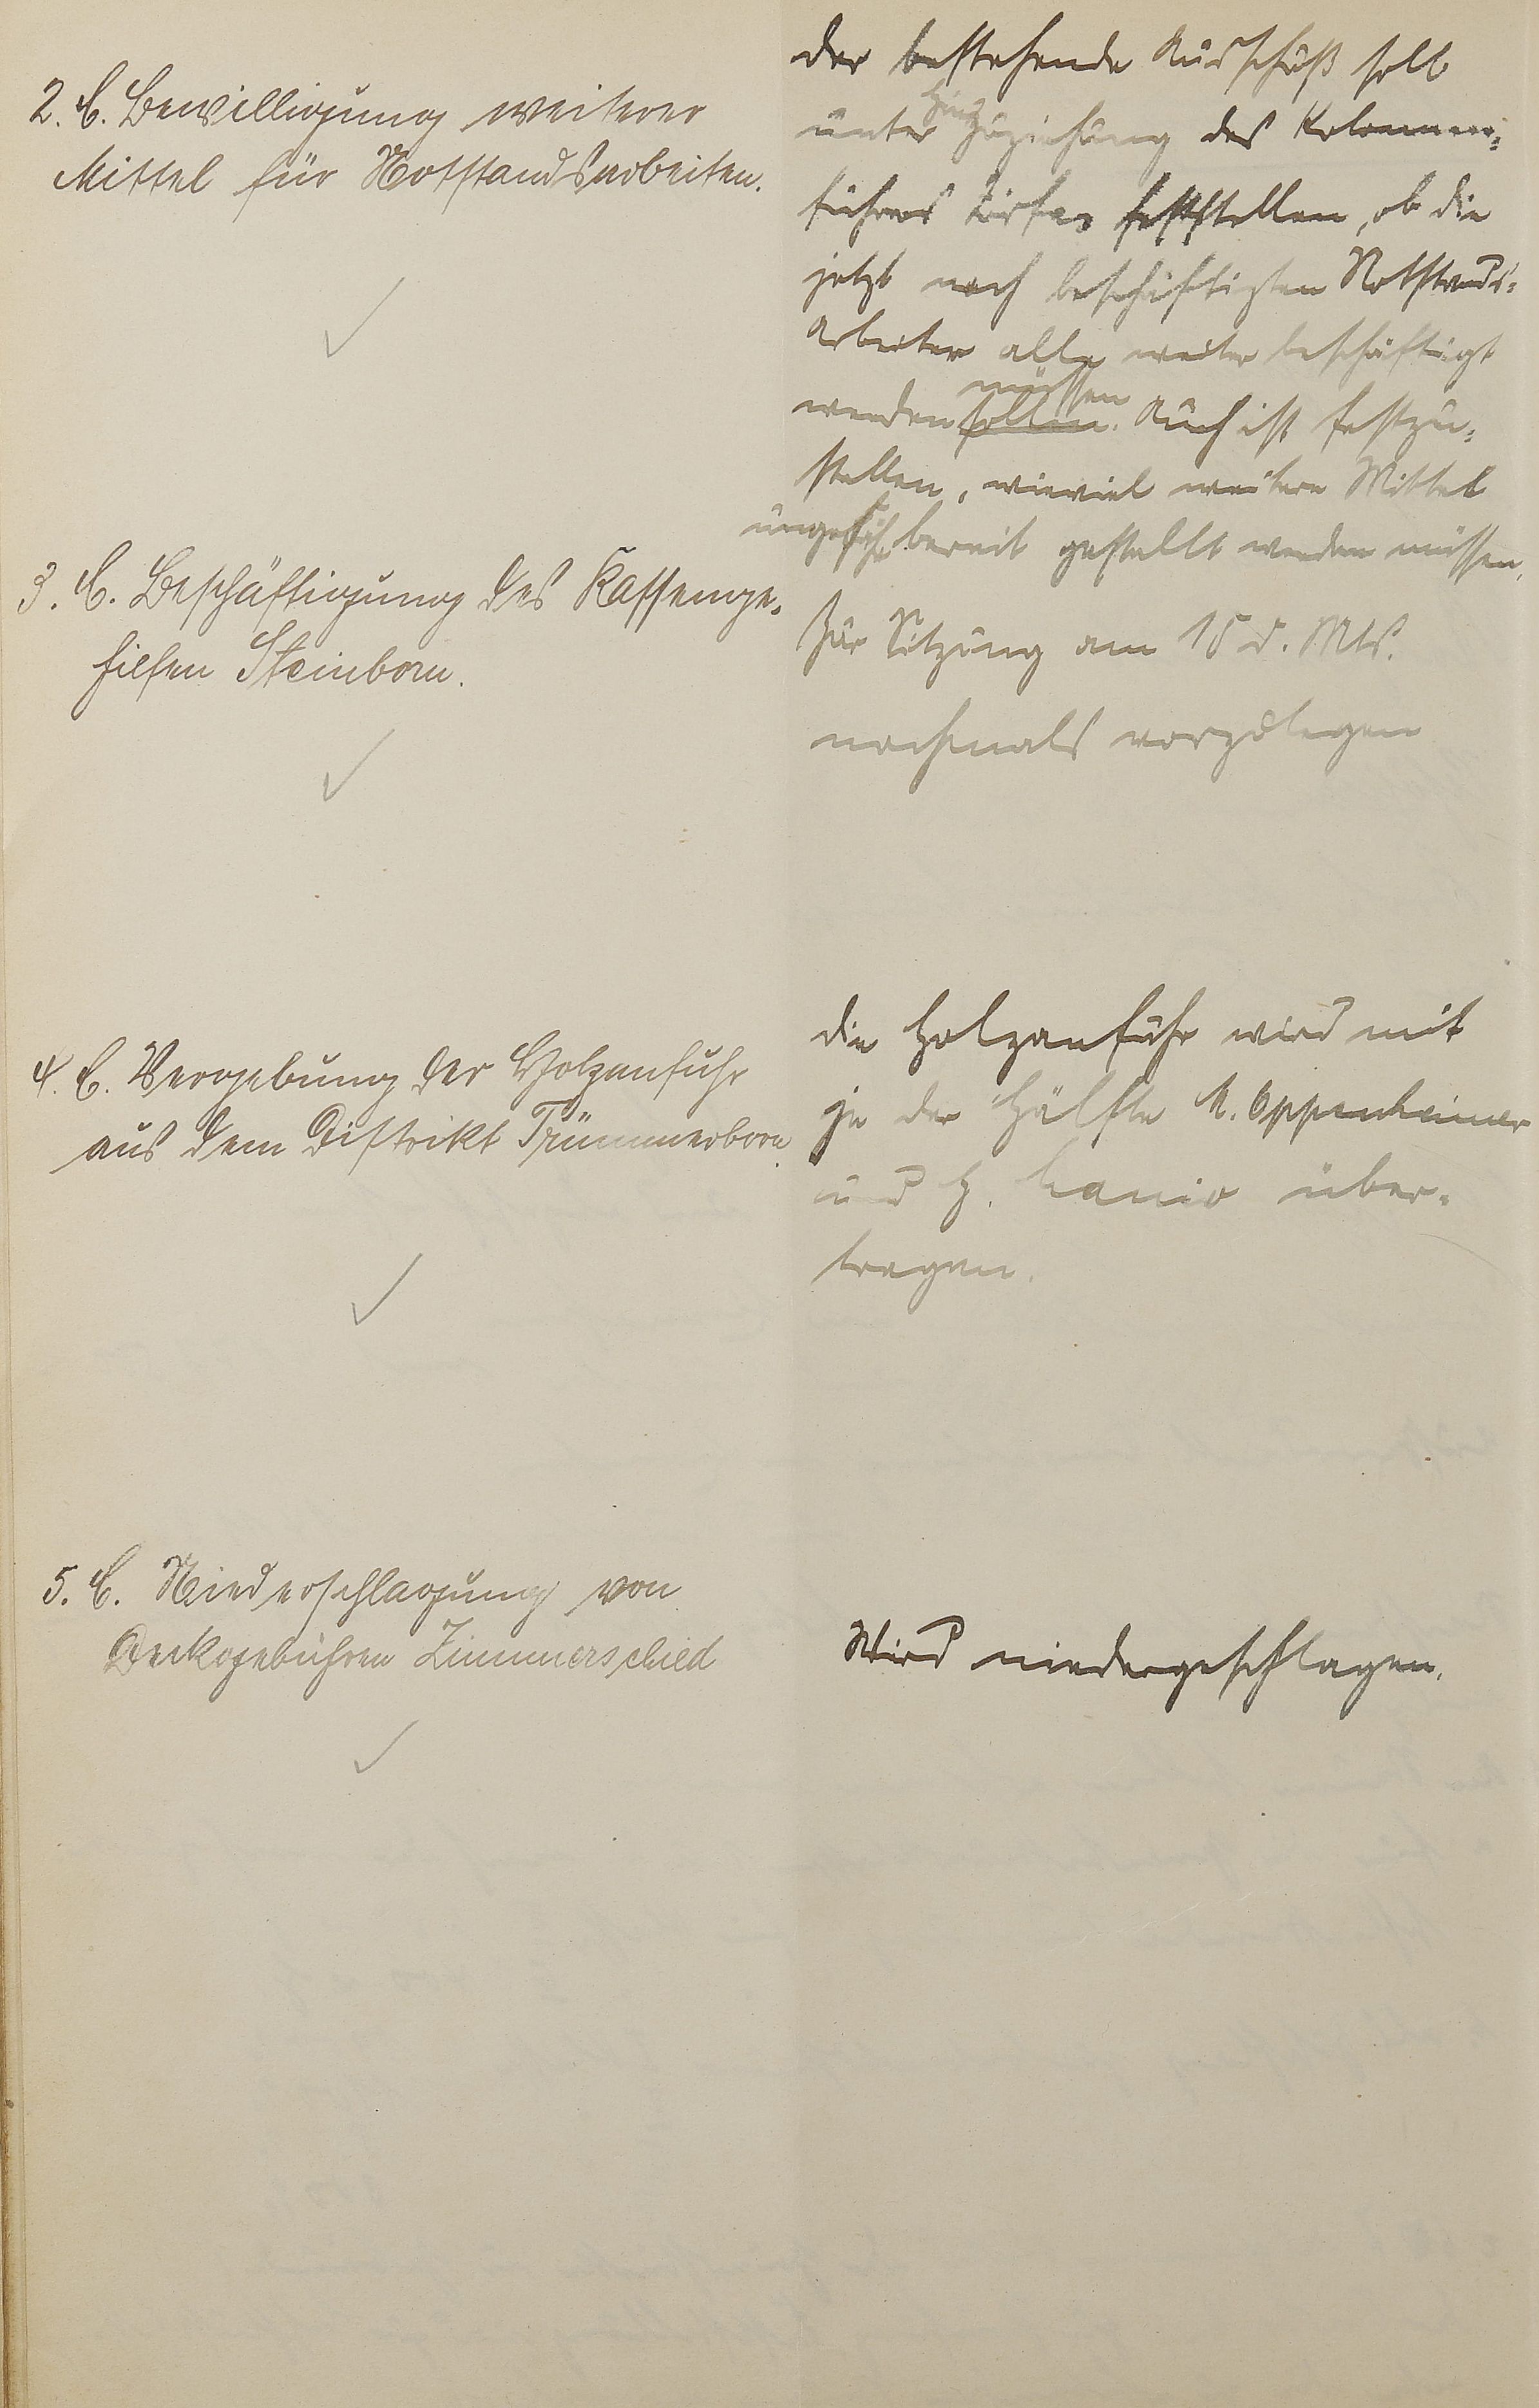 2. C. Bewilligung weiterer
Mittel für Notstandsarbeiten.
der bestehende Ausschuß soll
unter Hinzuziehung des Kolonnen-
führers feststellen, ob die
jetzt noch beschäftigten Notstands-
Arbeiter alle weiter beschäftigt
müssen
werden sollen. Auch ist festzu-
stellen, wieviel weitere Mittel
ungefähr bereit gestellt werden müssen.
3. C. Beschäftigung des Kassenge-
hilfen Steinborn.
Zur Sitzung am 15 d. Mts.
nochmals vorzulegen
4. C. Vergebung der Holzanfuhr
aus dem Distrikt Trümmerborn.
die Holzanfuhr wird mit
je der Hälfte A. Oppenheimer
und H. über-
tragen.
5. C. Niederschlagung von
Deckgebühren Zimmerschied
Wird niedergeschlagen.